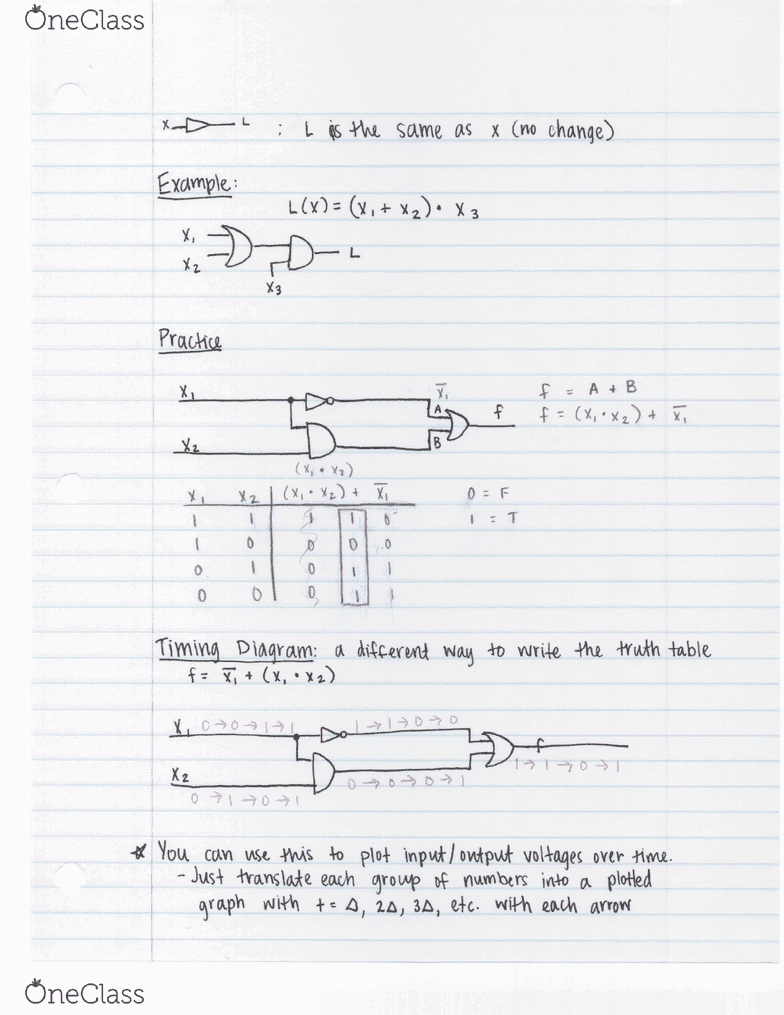 OneClass
X L : L is the same as x (no change)
Example:
L(x) = (x₁ + x₂) • x₃
x₁
x₂
L
x₃
Practice
x₁
x̅₁
A
f
f = A + B
f = (x₁ • x₂) + x̅₁
x₂
B
(x₁ • x₂)
x₁ x₂ (x₁ • x₂) + x̅₁
0 = F
1 1 1 1 0
1 = T
1 0 0 0 0
0 1 0 1 1
0 0 0 1 1
Timing Diagram: a different way to write the truth table
f = x̅₁ + (x₁ • x₂)
x₁ 0→0→1→1
1→1→0→0
f
1→1→0→1
x₂
0→1→0→1
0→0→0→1
* You can use this to plot input/output voltages over time.
- Just translate each group of numbers into a plotted
graph with t = Δ, 2Δ, 3Δ, etc. with each arrow
OneClass